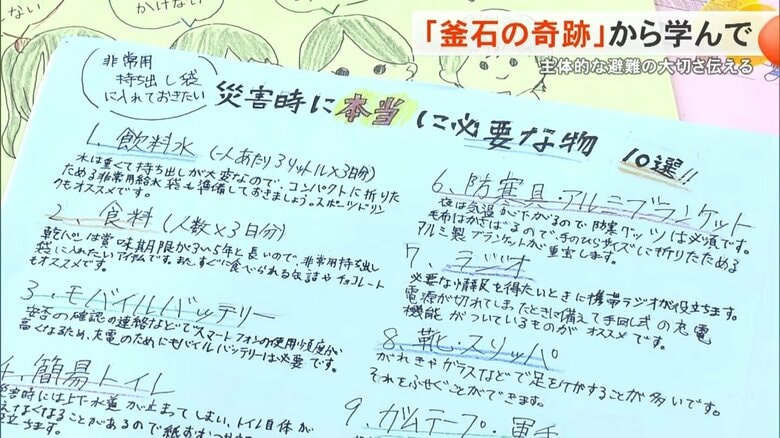 「釜石の奇跡」から学んで
主体的な避難の大切さ伝える
ない
かけない
非常用
持ち出し袋
に入れておきたい
災害時に本当に必要な物 10選!!
1、飲料水 (一人あたり3リットル×3日分)
水は重くて持ち出しが大変なので、コンパクトに折りた
ためる非常用給水袋も準備しておきましょう。スポーツドリン
クもオススメです。
2、食料 (人数×3日分)
乾パンは賞味期限が3〜5年と長いので、非常用持ち出し
袋に入れたいアイテムです。また、すぐに食べられる缶詰やチョコレート
もオススメです。
3、モバイルバッテリー
安否の確認の連絡などでスマートフォンの使用頻度が
高くなるため、充電のためにモバイルバッテリーは必要です。
4、簡易トイレ
災害時には上下水道が止まってしまい、トイレ自体が
えなくなることがあるので紙おむつ
立ちます。
6、防寒具・アルミブランケット
夜は気温が下がるので防寒グッズは必須です。
毛布はかさばるので、手のひらサイズに折りたためる
アルミ製ブランケットが重宝します。
7、ラジオ
必要な情報を得たいときに携帯ラジオが役立ちます。
電源が切れてしまったときに備えて手回し式の充電
機能がついているものがオススメです。
8、靴・スリッパ
がれきやガラスなどで足をけがすることが多いです。
それをふせぐことができます。
9、ガムテープ・軍手